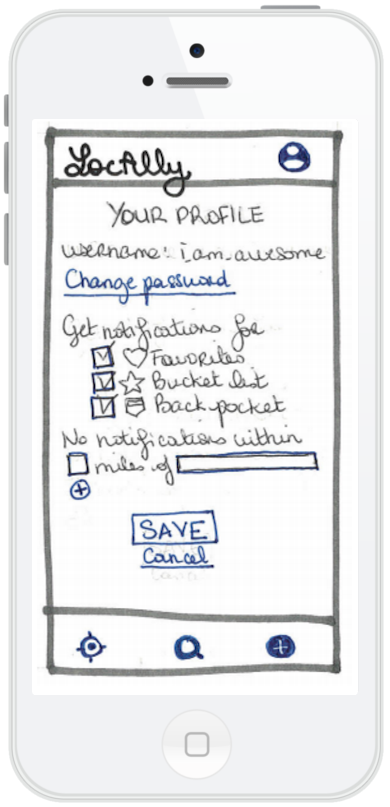 Locally
YOUR PROFILE
username: i.am.awesome
Change password
Get notifications for
Favorites
Bucket list
Back pocket
No notifications within
miles of
SAVE
Cancel